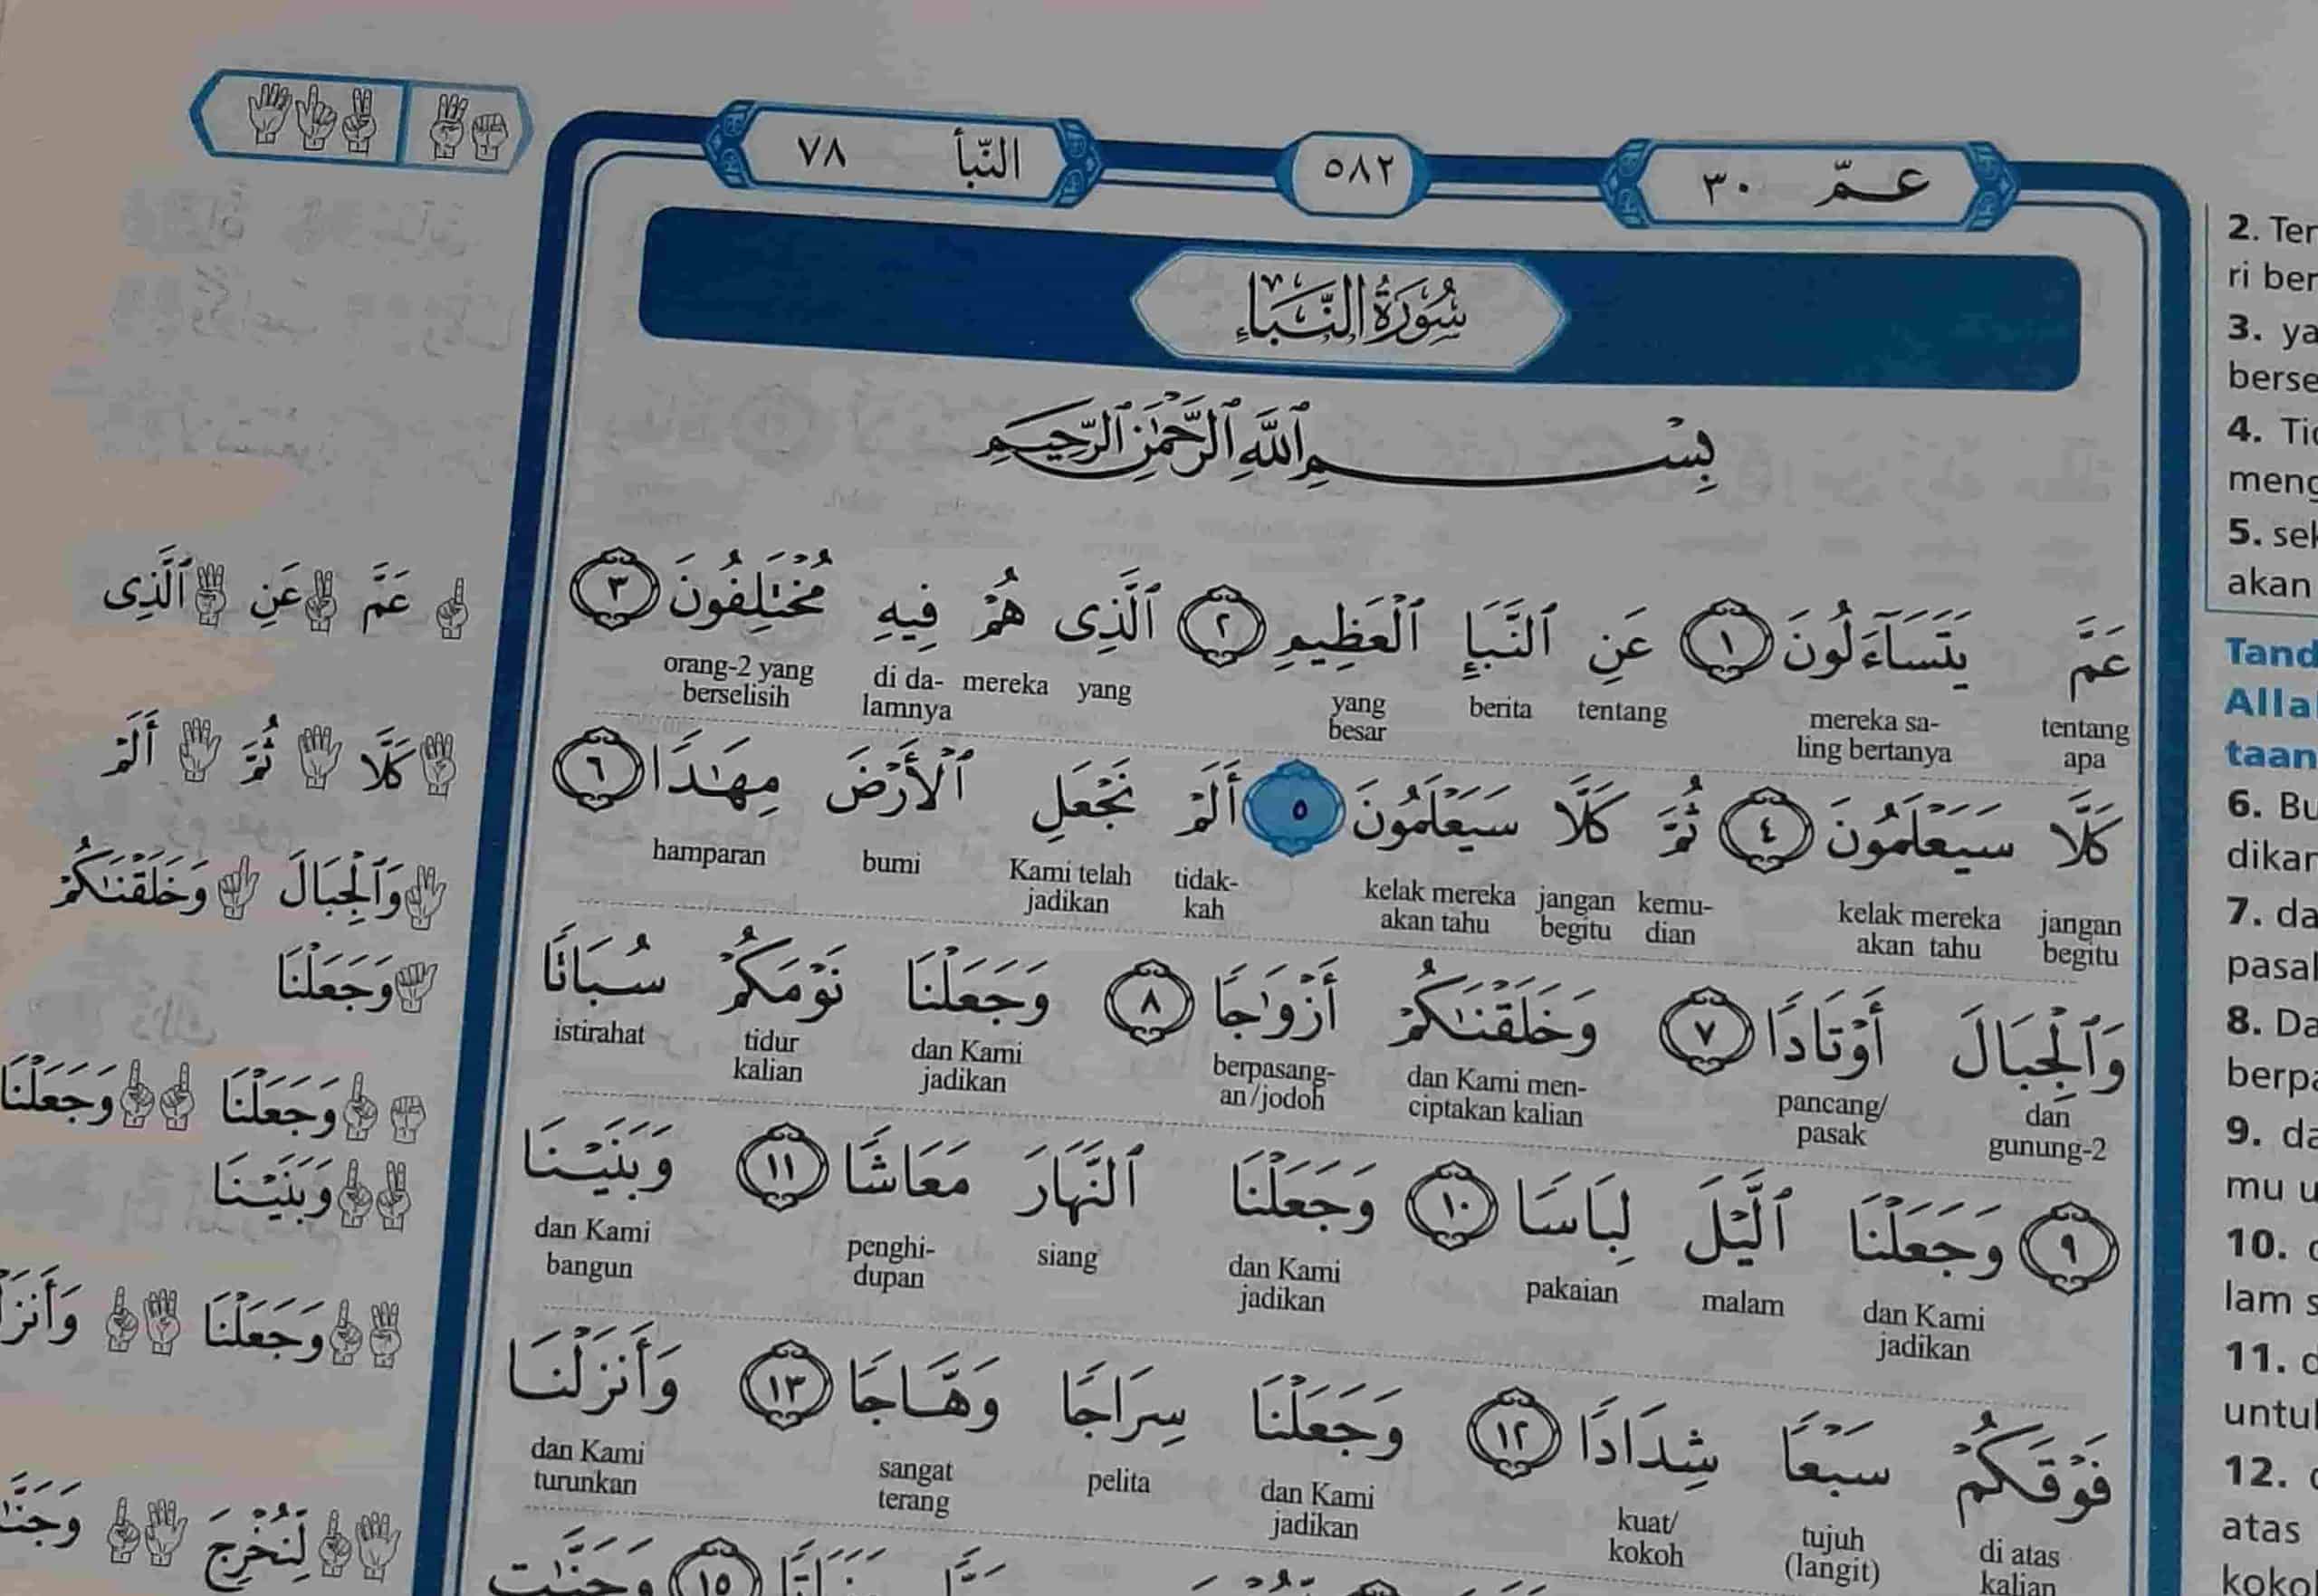 عـمّ ٣٠
٥٨٢
النّبأ ٧٨
سُوْرَةُ النَّبَاءِ
بِسْمِ ٱللَّهِ ٱلرَّحْمَٰنِ ٱلرَّحِيمِ
عَمَّ يَتَسَآءَلُونَ ١ عَنِ ٱلنَّبَإِ ٱلْعَظِيمِ ٢ ٱلَّذِى هُمْ فِيهِ مُخْتَلِفُونَ ٣
tentang apa mereka sa-ling bertanya tentang berita yang besar yang mereka di da-lamnya orang-2 yang berselisih
كَلَّا سَيَعْلَمُونَ ٤ ثُمَّ كَلَّا سَيَعْلَمُونَ ٥ أَلَمْ نَجْعَلِ ٱلْأَرْضَ مِهَٰدًا ٦
jangan begitu kelak mereka akan tahu kemu-dian jangan begitu kelak mereka akan tahu tidak-kah Kami telah jadikan bumi hamparan
وَٱلْجِبَالَ أَوْتَادًا ٧ وَخَلَقْنَٰكُمْ أَزْوَٰجًا ٨ وَجَعَلْنَا نَوْمَكُمْ سُبَاتًا
dan gunung-2 pancang/ pasak dan Kami men-ciptakan kalian berpasang-an/jodoh dan Kami jadikan tidur kalian istirahat
٩ وَجَعَلْنَا ٱلَّيْلَ لِبَاسًا ١٠ وَجَعَلْنَا ٱلنَّهَارَ مَعَاشًا ١١ وَبَنَيْنَا
dan Kami jadikan malam pakaian dan Kami jadikan siang penghi-dupan dan Kami bangun
فَوْقَكُمْ سَبْعًا شِدَادًا ١٢ وَجَعَلْنَا سِرَاجًا وَهَّاجًا ١٣ وَأَنزَلْنَا
di atas kalian tujuh (langit) kuat/ kokoh dan Kami jadikan pelita sangat terang dan Kami turunkan
١٥ وَجَنَّٰتٍ
عَمَّ عَنِ ٱلَّذِى
كَلَّا ثُمَّ أَلَمْ
وَٱلْجِبَالَ وَخَلَقْنَٰكُمْ
وَجَعَلْنَا
وَجَعَلْنَا وَجَعَلْنَا
وَبَنَيْنَا
وَجَعَلْنَا
لِنُخْرِجَ
2. Ter
ri ber
3. ya
berse
4.
meng
5. sek
akan
Tand
Alla
taan
6. Bu
dikan
7. da
pasal
8. Da
berpa
9. da
mu u
10.
lam s
11.
untu
12.
atas
koko